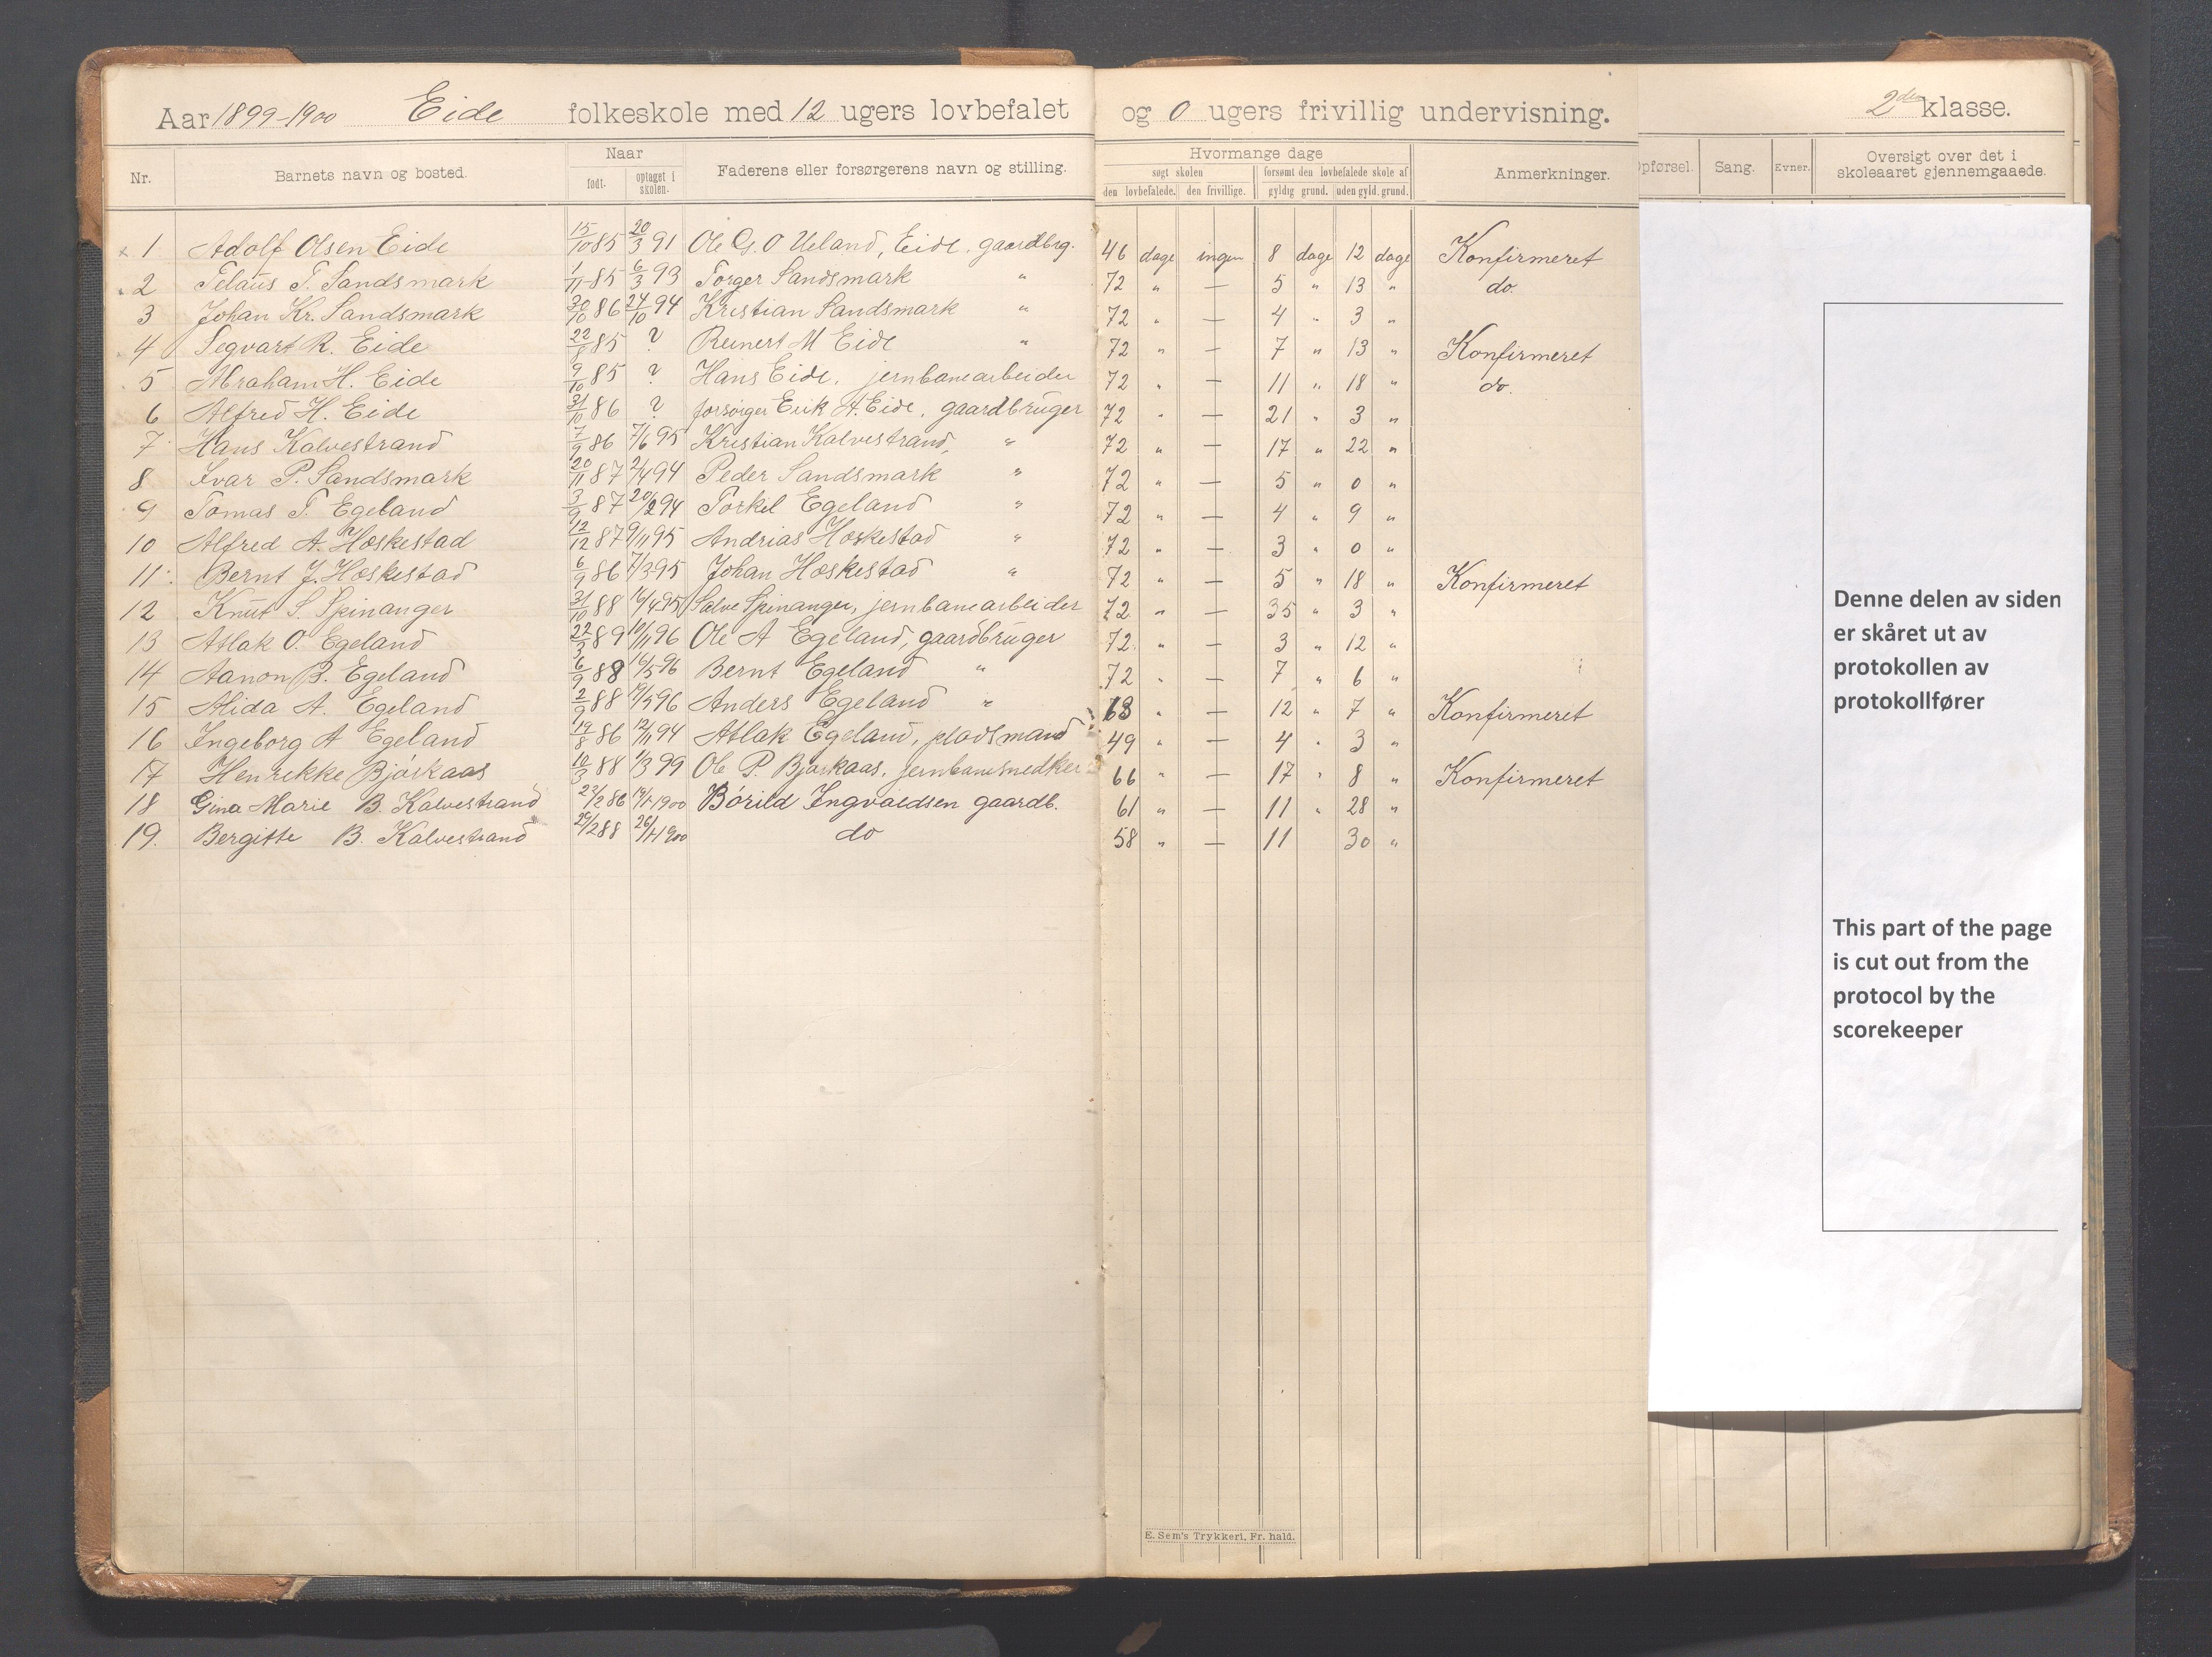 Aar 1899-1900 Eide folkeskole med 12 ugers lovbefalet og 0 ugers frivillig undervisning. 2den klasse.
Nr. Barnets navn og bosted. Naar født. optaget i skolen. Faderens eller forsørgerens navn og stilling. Hvormange dage søgt skolen den lovbefalede. den frivillige. forsømt den lovbefalede skole af gyldig grund. uden gyld. grund. Anmerkninger. Opførsel. Sang. Evner. Oversigt over det i skoleaaret gjennemgaaede.
1 Adolf Olsen Eide 15/10 85 20/3 91 Ole G. O Ueland, Eide, gaardbrg. 46 dage ingen 8 dage 12 dage Konfirmeret
2 Telaus T. Sandsmark 1/11 85 6/3 93 Torger Sandsmark " 72 " — 5 " 13 " do.
3 Johan Kr. Sandsmark 30/10 86 24/10 94 Kristian Sandsmark " 72 " — 4 " 3 "
4 Segvart R. Eide 22/8 85 ? Reinert M Eide " 72 " — 7 " 13 " Konfirmeret
5 Abraham H. Eide 9/10 85 ? Hans Eide, jernbanearbeider 72 " — 11 " 18 " do.
6 Alfred H. Eide 31/10 86 ? forsørger Erik A. Eide, gaardbruger 72 " — 21 " 3 "
7 Hans Kalvestrand 7/9 86 7/6 95 Kristian Kalvestrand, " 72 " — 17 " 22 "
8 Ivar P. Sandsmark 20/11 87 2/4 94 Peder Sandsmark " 72 " — 5 " 0 "
9 Tomas T. Egeland 3/9 87 20/2 94 Torkel Egeland " 72 " — 4 " 9 "
10 Alfred A. Hoskestad 12/12 87 9/11 95 Andrias Hoskestad " 72 " — 3 " 0 "
11 Bernt J. Hoskestad 6/9 86 7/3 95 Johan Hoskestad " 72 " — 5 " 18 " Konfirmeret
12 Knut S. Spinanger 31/10 88 16/4 95 Salve Spinanger, jernbanearbeider 72 " — 35 " 3 "
13 Atlak O. Egeland 22/3 89 10/11 96 Ole A Egeland, gaardbruger 72 " — 3 " 12 "
14 Aanon B. Egeland 6/9 88 16/5 96 Bernt Egeland " 72 " — 7 " 6 "
15 Alida A. Egeland 2/9 88 19/5 96 Anders Egeland " 63 " — 12 " 7 " Konfirmeret
16 Ingeborg A Egeland 19/8 86 12/11 94 Atlak Egeland, pladsmand 49 " — 4 " 3 "
17 Henrikke Bjørkaas 10/3 88 1/3 99 Ole P. Bjørkaas, jernbanesnedker 66 " — 17 " 8 " Konfirmeret
18 Gina Marie B. Kalvestrand 23/2 86 19/1 1900 Børild Ingvaldsen gaardb. 61 " — 11 " 28 "
19. Bergitte B. Kalvestrand 29/2 88 26/1 1900 do 58 " — 11 30 "
Denne delen av siden
er skåret ut av
protokollen av
protokollfører
This part of the page
is cut out from the
protocol by the
scorekeeper
E. Sem's Trykkeri, Fr. hald.